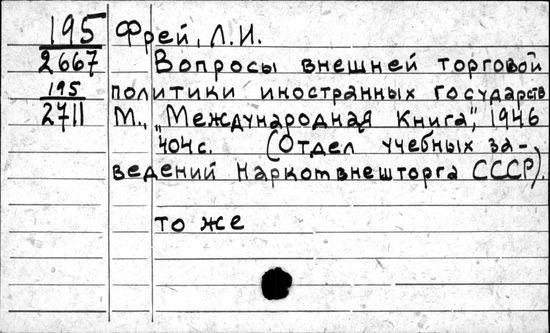 195 Фрей, Л.И.
2667 Вопросы внешней торговой
195 политики иностранных государств
2711 М., „Международная книга", 1946
404с. (Отдел учебных за-
ведений Наркомвнешторга СССР).
то же